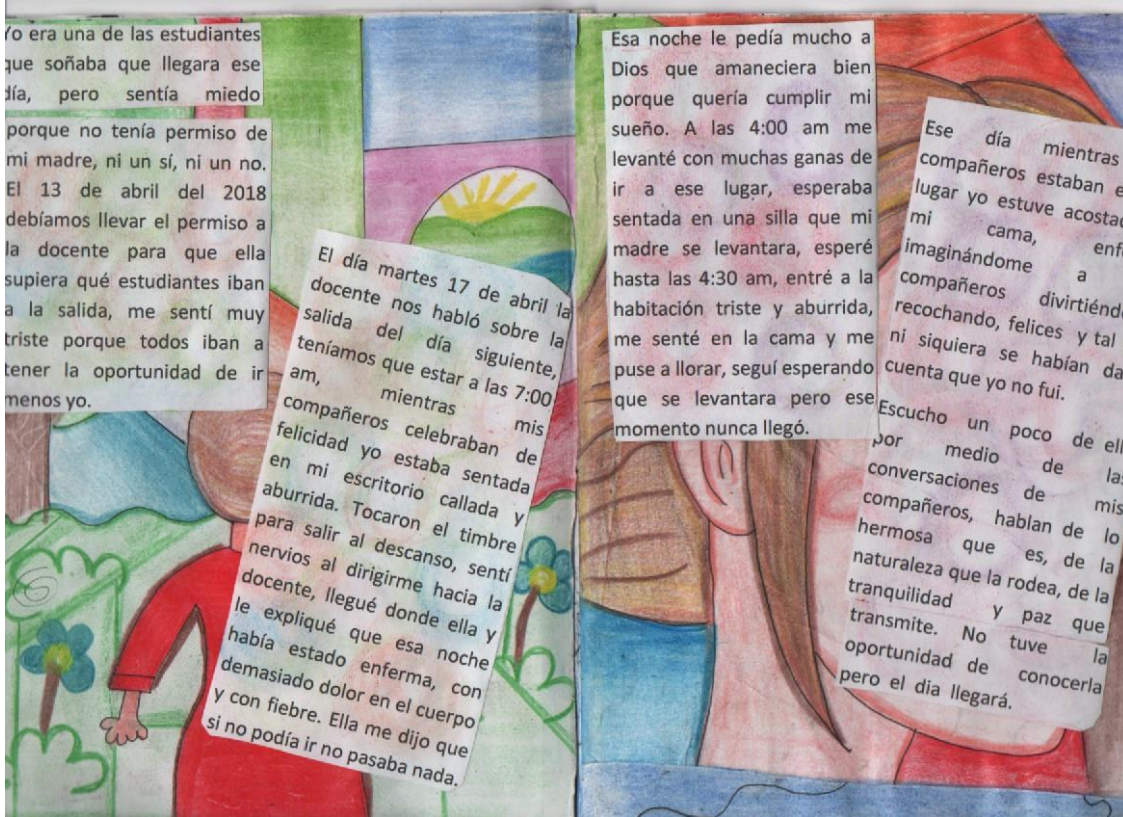 Yo era una de las estudiantes
que soñaba que llegara ese
día, pero sentía miedo
porque no tenía permiso de
mi madre, ni un sí, ni un no.
El 13 de abril del 2018
debíamos llevar el permiso a
la docente para que ella
supiera qué estudiantes iban
a la salida, me sentí muy
triste porque todos iban a
tener la oportunidad de ir
menos yo.
El día martes 17 de abril la
docente nos habló sobre la
salida del día siguiente,
teníamos que estar a las 7:00
am, mientras mis
compañeros celebraban de
felicidad yo estaba sentada
en mi escritorio callada y
aburrida. Tocaron el timbre
para salir al descanso, sentí
nervios al dirigirme hacia la
docente, llegué donde ella y
le expliqué que esa noche
había estado enferma, con
demasiado dolor en el cuerpo
y con fiebre. Ella me dijo que
si no podía ir no pasaba nada.
Esa noche le pedía mucho a
Dios que amaneciera bien
porque quería cumplir mi
sueño. A las 4:00 am me
levanté con muchas ganas de
ir a ese lugar, esperaba
sentada en una silla que mi
madre se levantara, esperé
hasta las 4:30 am, entré a la
habitación triste y aburrida,
me senté en la cama y me
puse a llorar, seguí esperando
que se levantara pero ese
momento nunca llegó.
Ese día mientras
compañeros estaban e
lugar yo estuve acostad
mi cama, enfe
imaginándome a
compañeros divirtiénd
recochando, felices y tal
ni siquiera se habían da
cuenta que yo no fui.
Escucho un poco de ell
por medio de las
conversaciones de mis
compañeros, hablan de lo
hermosa que es, de la
naturaleza que la rodea, de la
tranquilidad y paz que
transmite. No tuve la
oportunidad de conocerla
pero el dia llegará.